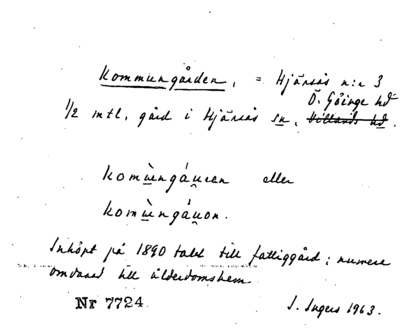 Kommungården, = Hjärsås n:r 3
Ö. Göinge hd
1/2 mtl, gård i Hjärsås sn, Villands hd.
komùngáuen eller
komùngáuon.
Inköpt på 1890 talet till fattiggård; numera
omändrad till ålderdomshem
Nr 7724
I. Ingers 1963.